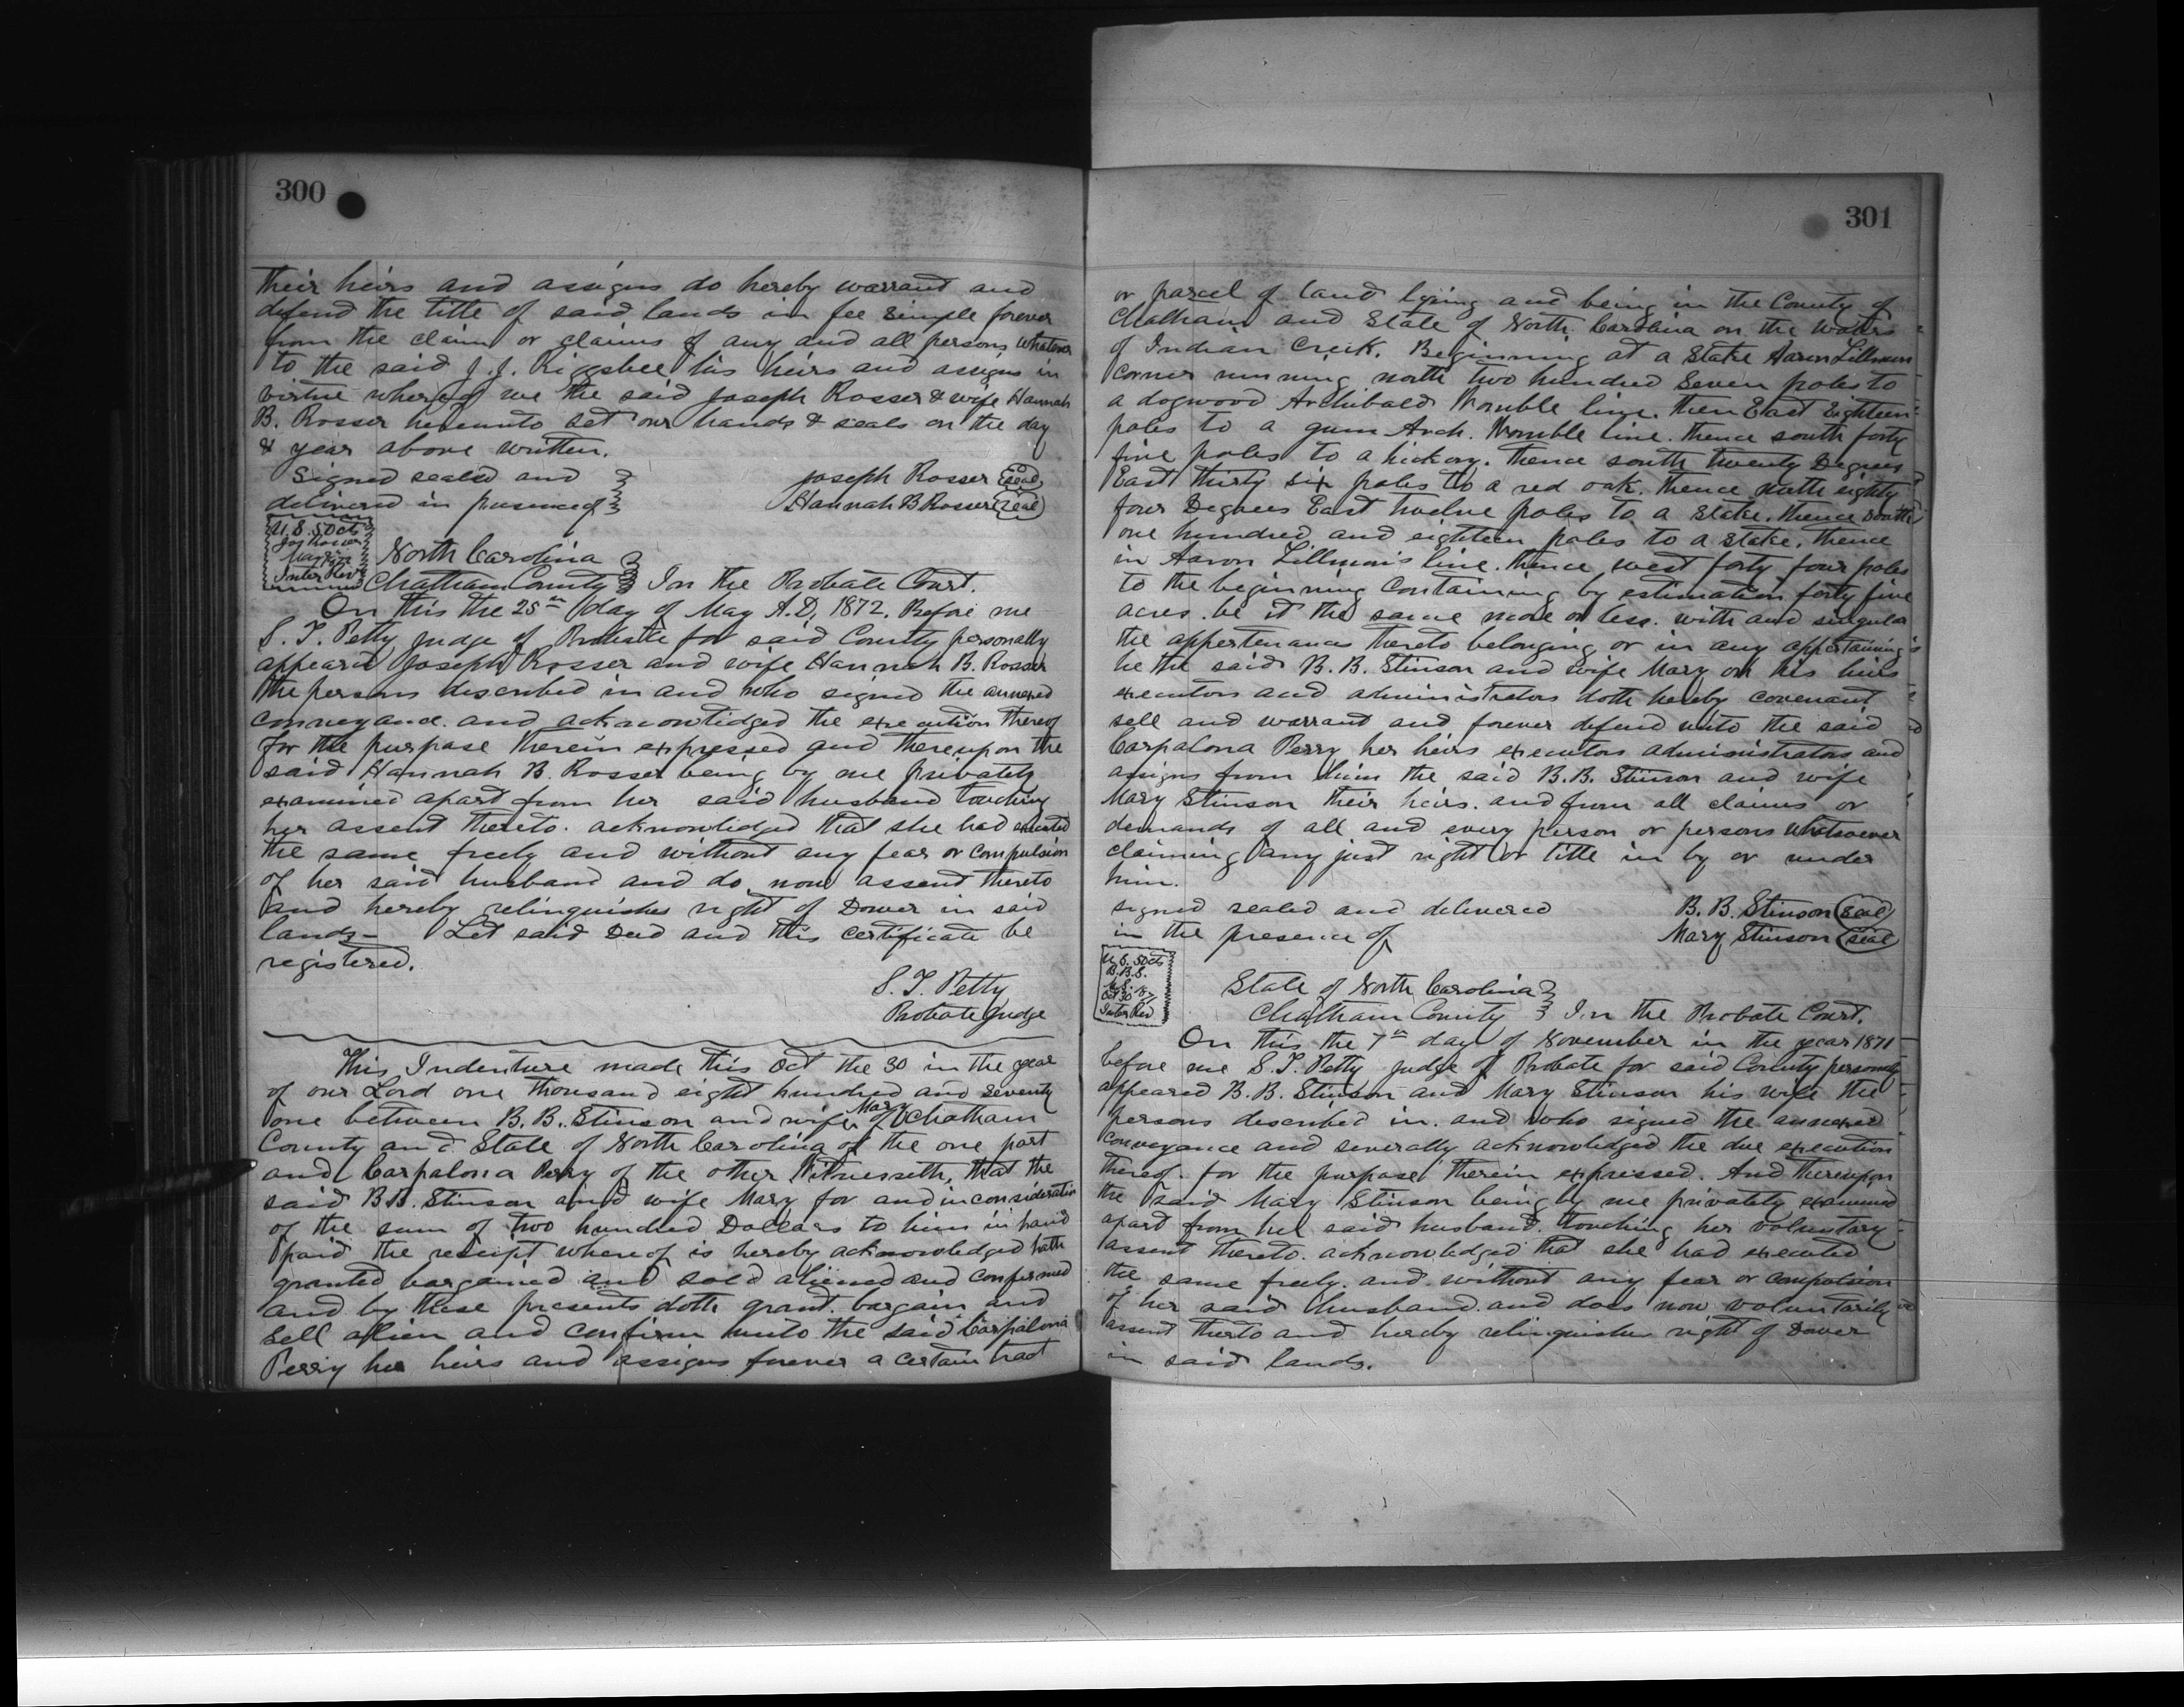 300
Their heirs and assigns do hereby warrant and
defend the title of said lands in fee simple forever
from the claim or claims of any and all persons whatever
to the said J. J. Riggsbee his heirs and assigns in
virtue whereof we the said Joseph Rosser & wife Hannah
B. Rosser hereunto set our hands & seals on the day
& year above written.
Signed sealed and
delivered in presence of
Joseph Rosser (seal)
Hannah B Rosser (seal)
U.S. 50 cts
Jos Rosser
Inter Rev
North Carolina
Chatham County } In the Probate Court.
On this the 25th day of May A.D. 1872. Before me
S. T. Petty Judge of Probate for said County personally
appeared Joseph Rosser and wife Hannah B. Rosser
the persons described in and who signed the annexed
conveyance. and acknowledged the execution thereof
for the purpose therein expressed and thereupon the
said Hannah B. Rosser being by me privately
examined apart from her said husband touching
her assent thereto. acknowledged that she had executed
the same freely and without any fear or compulsion
of her said husband and do now assent thereto
and hereby relinquishes right of Dower in said
lands— Let said Deed and this certificate be
registered.
S. T. Petty
Probate Judge
This Indenture made this Oct the 30 in the year
of our Lord one thousand eight hundred and seventy
one between B. B. Stinson and wife Mary of Chatham
County and State of North Carolina of the one part
and Carpalona Perry of the other Witnesseth, that the
said B.B. Stinson and wife Mary for and in consideration
of the sum of two hundred Dollars to him in hand
paid the receipt whereof is hereby acknowledged hath
granted bargained and sold aliened and confirmed
and by these presents doth grant. bargain and
sell alien and confirm unto the said Carpalona
Perry her heirs and assigns forever a certain tract
301
or parcel of land lying and being in the County of
Chatham and State of North Carolina on the waters
of Indian Creek. Beginning at a stake Aaron Tillman
corner running north two hundred seven poles to
a dogwood Archibald Womble line. then East Eighteen
poles to a gum Arch. Womble line. thence south forty
five poles to a hickory. thence south twenty Degrees
East thirty six poles to a red oak. thence south eighty
four Degrees East twelve poles to a stake. thence south
one hundred and eighteen poles to a stake. thence
in Aaron Tillman's line. thence west forty four poles
to the beginning Containing by estimation forty five
acres be it the same more or less. with and singular
the appertenances thereto belonging or in any appertaining
he the said B. B. Stinson and wife Mary or his heirs
executors and administrators doth hereby covenant
sell and warrant and forever defend unto the said
Carpalona Perry her heirs executors administrators and
assigns from him the said B.B. Stinson and wife
Mary Stinson their heirs. and from all claims or
demands of all and every person or persons whatsoever
claiming any just right or title in by or under
him.
signed sealed and delivered
in the presence of
B. B. Stinson (seal)
Mary Stinson (seal)
U.S. 50 cts
B.B.S.
M.S.
Oct 30
Inter Rev
State of North Carolina
Chatham County } In the Probate Court.
On this the 7th day of November in the year 1871
before me S. T. Petty Judge of Probate for said County personaly
appeared B. B. Stinson and Mary Stinson his wife the
persons described in. and who signed the annexed
conveyance and severally acknowledged the due execution
thereof. for the purpose therein expressed. And thereupon
the said Mary Stinson being by me privately examined
apart from her said husband. touching her voluntary
assent thereto. acknowledged that she had executed
the same freely. and without any fear or compulsion
of her said husband. and does now voluntarily
assent therto and hereby relinquishes right of Dower
in said lands.